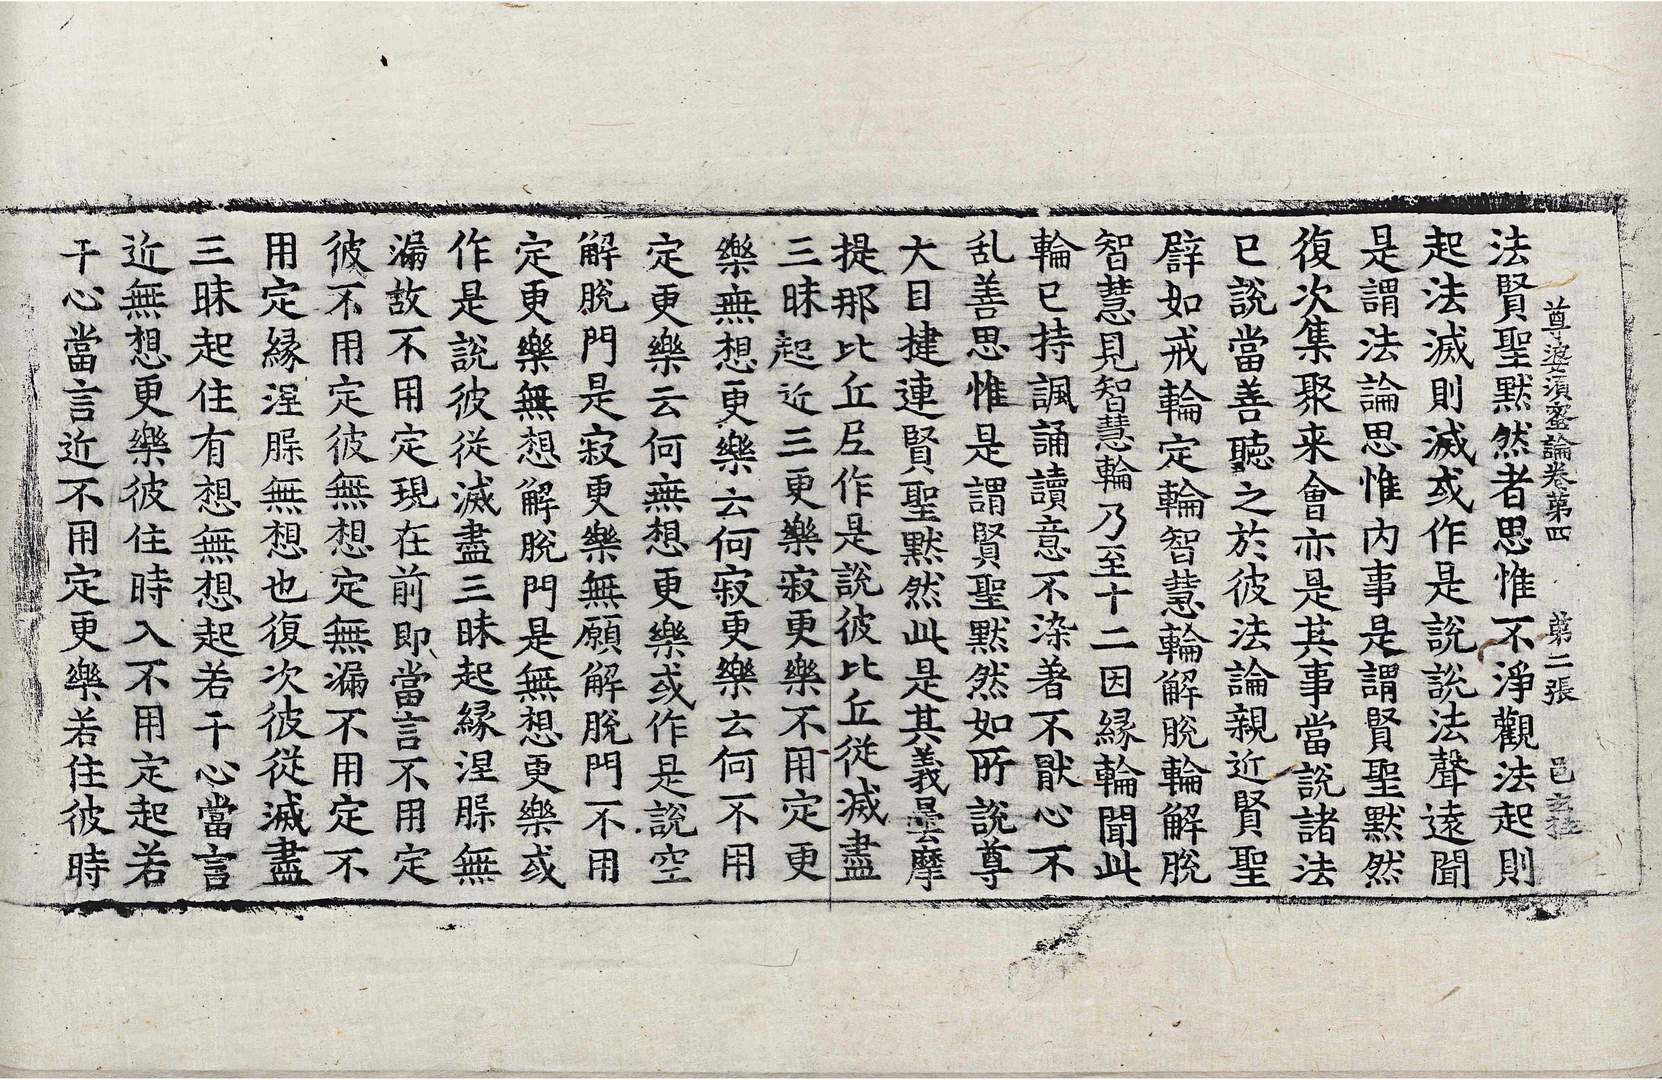 尊婆須蜜論卷第四　第二張　邑
法賢聖默然者思惟不淨觀法起則
起法滅則滅或作是說說法聲遠聞
是謂法論思惟内事是謂賢聖默然
復次集聚来會亦是其事當說諸法
已說當善聽之於彼法論親近賢聖
譬如戒輪定輪智慧輪解脫輪解脫
智慧見智慧輪乃至十二因縁輪聞此
輪已持諷誦讀意不染著不猒心不
乱善思惟是謂賢聖默然如所說尊
大目揵連賢聖默然此是其義曇摩
提那比丘尼作是說彼比丘從滅盡
三昧起近三更樂寂更樂不用定更
樂無想更樂云何寂更樂云何不用
定更樂云何無想更樂或作是說空
解脫門是寂更樂無願解脫門不用
定更樂無想解脫門是無想更樂或
作是說彼從滅盡三昧起縁涅槃無
漏故不用定現在前即當言不用定
彼不用定彼無想定無漏不用定不
用定縁涅槃無想也復次彼從滅盡
三昧起住有想無想起若干心當言
近無想更樂彼住時入不用定起若
干心當言近不用定更樂若住彼時